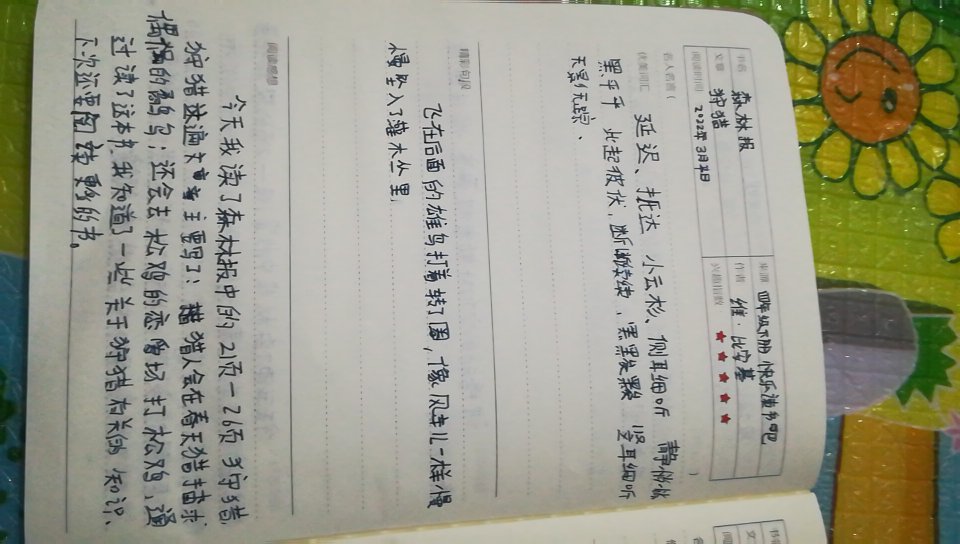 书名 森林报 来源 四年级下册 快乐读书吧
文章 狩猎 作者 维·比安基
阅读时间 2022年3月 日 兴趣指数 ★★★★★
名人名言（ ）
优美词汇 延迟、抵达 小云杉、侧耳细听 静悄悄
黑乎乎 此起彼伏，断断续续，黑黑 竖耳细听
无影无踪、
精彩句段
飞在后面的雄鸟打着转了圈，像风车儿一样慢
慢坠入了灌木丛里，
阅读感想
今天我读了森林报中的21页—26页 狩猎
狩猎这遍 主要写了：猎人会在春天猎捕求
偶的 鸟；还会去松鸡的恋爱场打松鸡、通
过读了这本书，我知道了一些关于狩猎相关的知识、
下次还要阅读 的书。